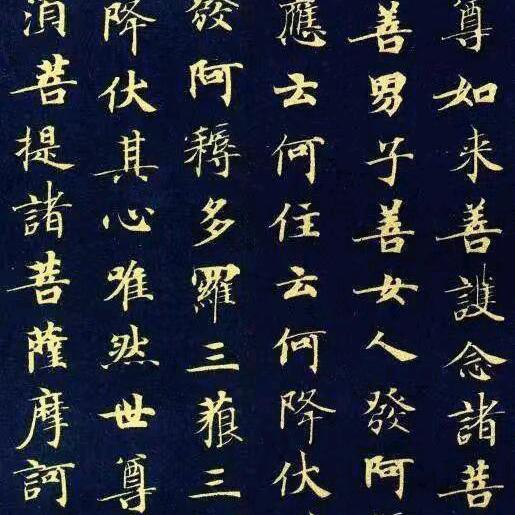 尊如来善護念諸菩
善男子善女人發阿
應云何住云何降伏
發阿耨多羅三藐三
降伏其心唯然世尊
菩提諸菩薩摩訶